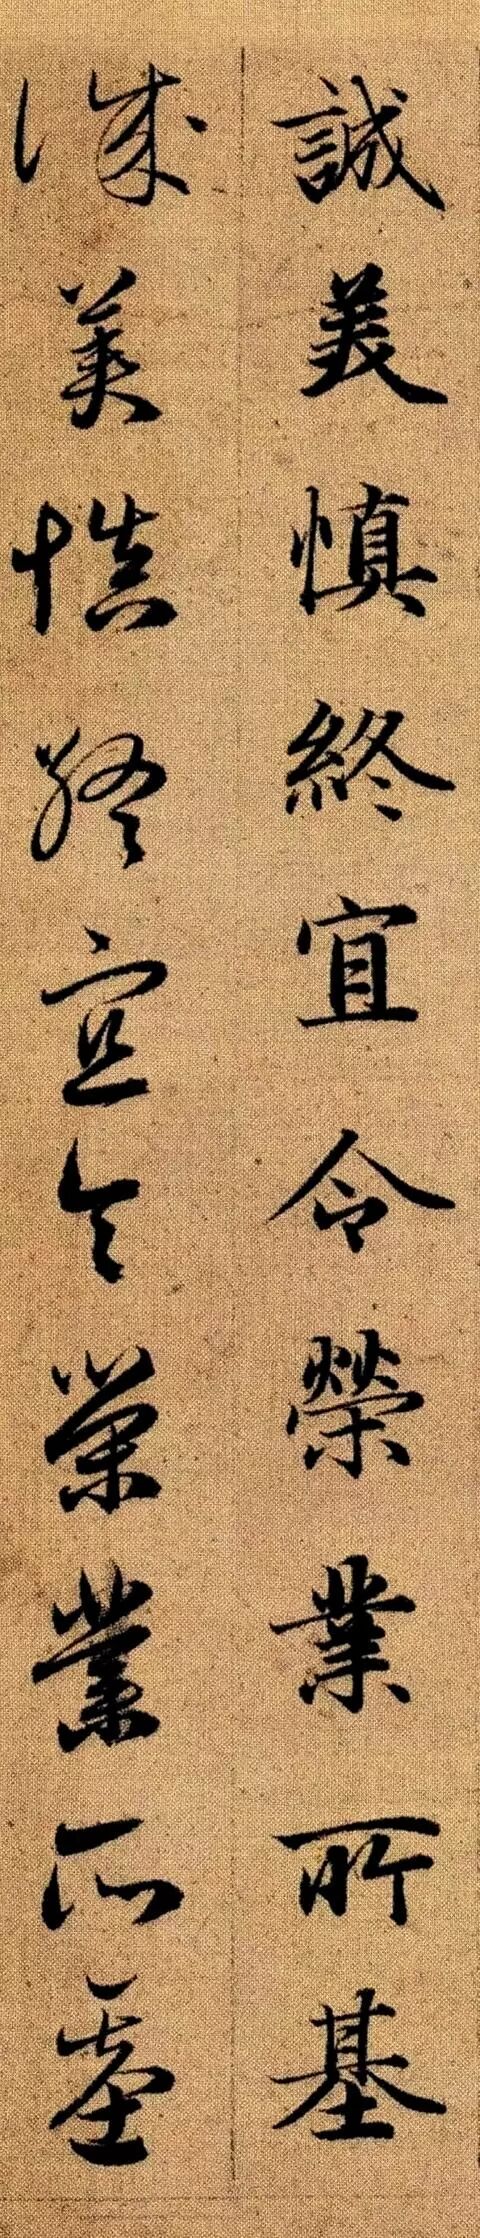 誠美慎終宜令榮業所基
誠美慎終宜令榮業所基